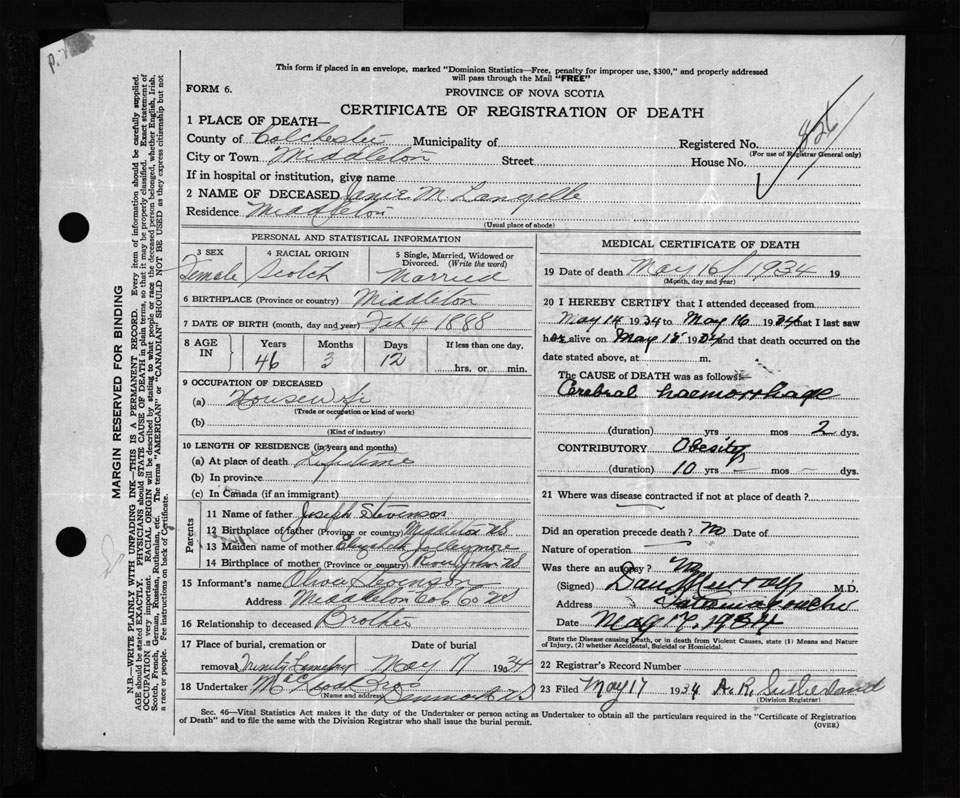 This form if placed in an envelope, marked "Dominion Statistics—Free, penalty for improper use, $300," and properly addressed
will pass through the Mail "FREE"
FORM 6.
PROVINCE OF NOVA SCOTIA
CERTIFICATE OF REGISTRATION OF DEATH
1 PLACE OF DEATH—
County of Colchester Municipality of Registered No. 826
(For use of Registrar General only)
City or Town Middleton Street House No.
If in hospital or institution, give name
2 NAME OF DECEASED Janie M. Langille
Residence Middleton
(Usual place of abode)
PERSONAL AND STATISTICAL INFORMATION
3 SEX 4 RACIAL ORIGIN 5 Single, Married, Widowed or
Divorced. (Write the word)
Female Scotch Married
6 BIRTHPLACE (Province or country) Middleton
7 DATE OF BIRTH (month, day and year) Feb 4 1888
8 AGE IN Years Months Days If less than one day,
46 3 12 hrs. or min.
9 OCCUPATION OF DECEASED
(a) Housewife
(Trade or occupation or kind of work)
(b)
(Kind of industry)
10 LENGTH OF RESIDENCE (in years and months)
(a) At place of death Lifetime
(b) In province
(c) In Canada (if an immigrant)
Parents
11 Name of father Joseph Stevenson
12 Birthplace of father (Province or country) Middleton NS
13 Maiden name of mother Elizabeth
14 Birthplace of mother (Province or country) River John NS
15 Informant's name Oliver Stevenson
Address Middleton Col. Co. NS
16 Relationship to deceased Brother
17 Place of burial, cremation or Date of burial
removal Trinity Cemetery May 17 1934
18 Undertaker Bros Denmark NS
(Name and address)
MEDICAL CERTIFICATE OF DEATH
19 Date of death May 16/1934 19
(Month, day and year)
20 I HEREBY CERTIFY that I attended deceased from
May 14 1934 to May 16 1934 that I last saw
her alive on May 1934 and that death occurred on the
date stated above, at m.
The CAUSE of DEATH was as follows:
Cerebral haemorrhage
(duration) yrs mos 2 dys.
CONTRIBUTORY Obesity
(duration) 10 yrs — mos - dys.
21 Where was disease contracted if not at place of death?
Did an operation precede death? no Date of
Nature of operation
Was there an autopsy? No
(Signed) Dan Murray M.D.
Address Tatamagouche
Date May 17, 1934
State the Disease causing Death, or in death from Violent Causes, state (1) Means and Nature
of Injury, (2) whether Accidental, Suicidal or Homicidal.
22 Registrar's Record Number
23 Filed May 17 1934 A. R. Sutherland
(Division Registrar)
Sec. 46—Vital Statistics Act makes it the duty of the Undertaker or person acting as Undertaker to obtain all the particulars required in the "Certificate of Registration
of Death" and to file the same with the Division Registrar who shall issue the burial permit.
(OVER)
MARGIN RESERVED FOR BINDING
N.B.—WRITE PLAINLY WITH UNFADING INK—THIS IS A PERMANENT RECORD. Every item of information should be carefully supplied.
AGE should be stated EXACTLY. PHYSICIANS should STATE CAUSE OF DEATH in plain terms, so that it may be properly classified. Exact statement of
OCCUPATION is very important. RACIAL ORIGIN will be described by stating to what people or race the deceased person belonged, whether English, Irish,
Scotch, French, German, Russian, Ruthenian, etc. The terms "AMERICAN" or "CANADIAN" SHOULD NOT BE USED as they express citizenship but not
a race or people. See instructions on back of Certificate.